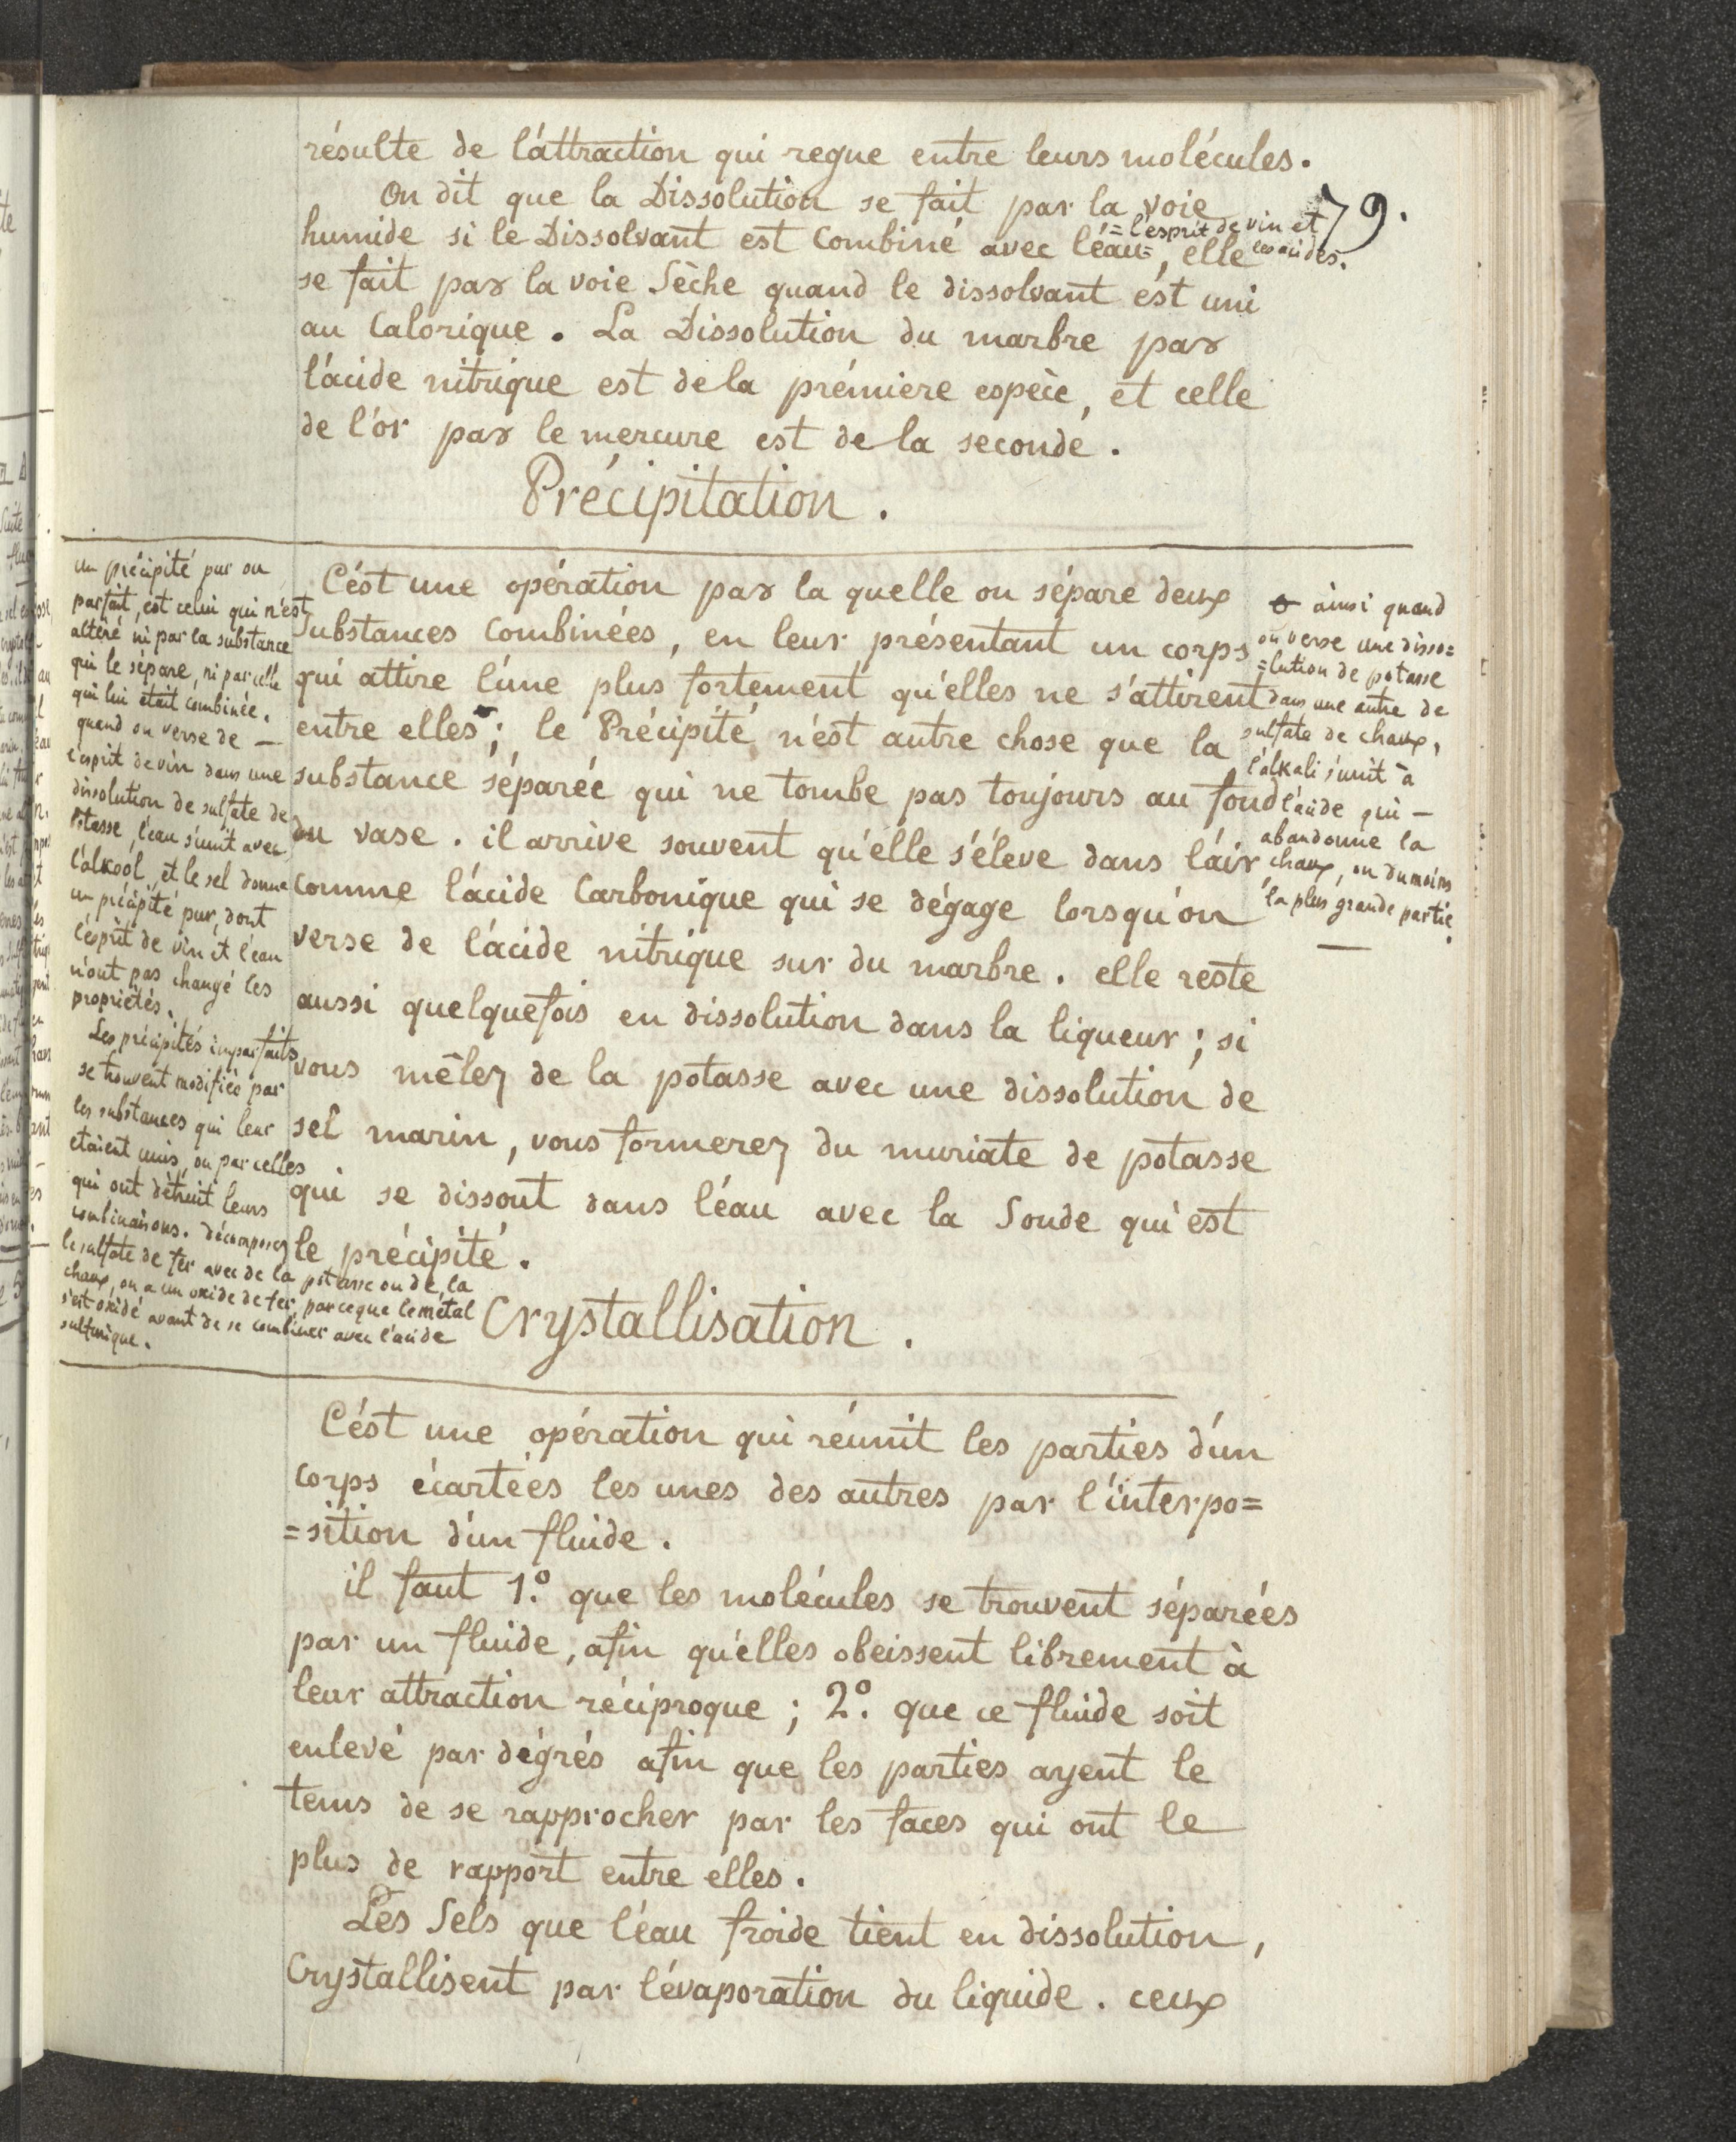 résulte de l'attraction qui regne entre leurs molécules.
79.
On dit que la Dissolution se fait par la voie
humide si le Dissolvant est Combiné avec l'éau=, elle
= l'esprit de vin et
les acides.
se fait par la voie Sèche quand le dissolvant est uni
au Calorique. La Dissolution du marbre par
l'acide nitrique est de la prémiere espèce, et celle
de l'or par le mercure est de la seconde.
Précipitation.
C'ést une opération par la quelle on sépare deux
Substances Combinées, en leur présentant un corps
qui attire l'une plus fortement qu'elles ne s'attirent
entre elles; le Précipité n'ést autre chose que la
substance séparée qui ne tombe pas toujours au fond
du vase. il arrive souvent qu'elle s'éleve dans l'air,
Comme l'ácide Carbonique qui se dégage lorsqu'on
verse de l'ácide nitrique sur du marbre. elle reste
aussi quelquefois en dissolution dans la liqueur; si
vous mêlez de la potasse avec une dissolution de
sel marin, vous formerez du muriate de potasse
qui se dissout dans l'éau avec la Soude qui est
le précipité.
un précipité pur ou
parfait, est celui qui n'est
altéré ni par la substance
qui le sépare, ni par celle
qui lui était combinée.
quand on verse de —
l'esprit de vin dans une
dissolution de sulfate de
Potasse, l'eau s'unit avec
l'alkool, et le sel donne
un précipité pur, dont
l'ésprit de vin et l'eau
n'ont pas changé les
propriétés.
Les précipités imparfaits
se trouvent modifiés par
les substances qui leur
étaient unis, ou par celles
qui ont détruit leurs
combinaisons. décomposez
le sulfate de fer avec de la potasse ou de la
chaux, on a un oxide de fer, parceque le métal
s'est oxidé avant de se combiner avec l'acide
sulfurique.
ainsi quand
on verse une disso=
=lution de potasse
dans une autre de
sulfate de chaux,
l'alkali s'unit à
l'acide qui —
abandonne la
chaux, ou du moins
la plus grande partie.
Crystallisation.
C'ést une opération qui réunit les parties d'un
Corps écartées les unes des autres par l'interpo=
=sition d'un fluide.
il faut 1.º que les molécules se trouvent séparées
par un fluide, afin qu'elles obeissent librement à
leur attraction réciproque; 2.º que ce fluide soit
enlevé par dégrés afin que les parties ayent le
tems de se rapprocher par les faces qui ont le
plus de rapport entre elles.
Les Sels que l'éau froide tient en dissolution,
Crystallisent par l'évaporation du liquide. ceux